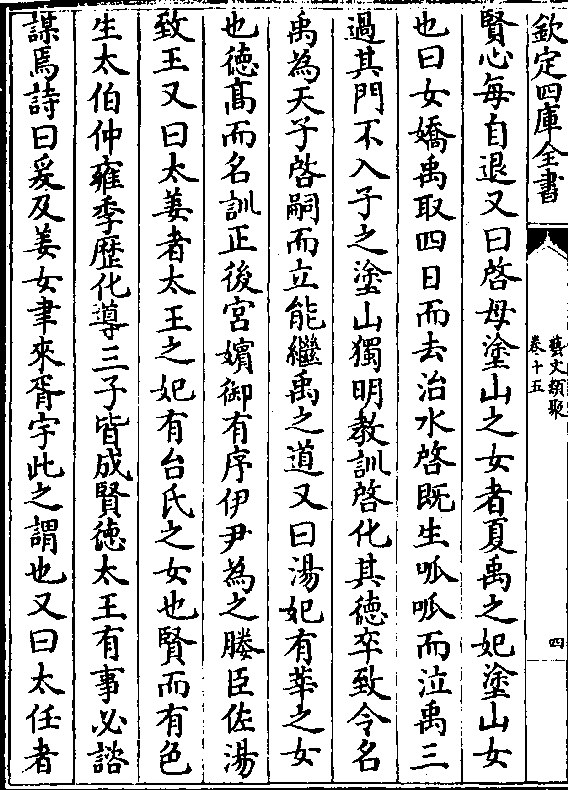 欽定四庫全書
藝文類聚
卷十五
四
賢心每自退又曰啓母塗山之女者夏禹之妃塗山女
也曰女嬌禹取四日而去治水啓既生呱呱而泣禹三
過其門不入子之塗山獨明教訓啓化其德卒致令名
禹為天子啓嗣而立能繼禹之道又曰湯妃有莘之女
也徳髙而名訓正後宮嬪御有序伊尹為之媵臣佐湯
致王又曰太姜者太王之妃有台氏之女也賢而有色
生太伯仲雍季歴化導三子皆成賢徳太王有事必諮
謀焉詩曰爰及姜女聿來胥宇此之謂也又曰太任者